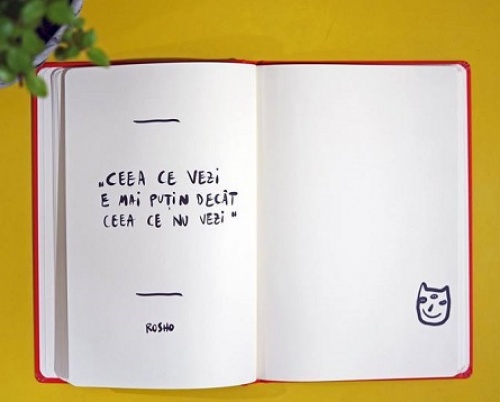 „CEEA CE VEZI
E MAI PUȚIN DECÂT
CEEA CE NU VEZI"
ROSHO